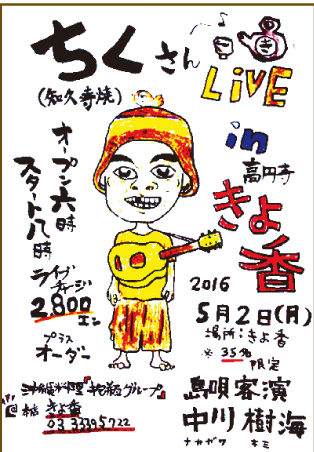 ちくさん
(知久寿焼)
LiVE
in
高円寺
きよ香
オープン六時
スタート八時
ライブ
チャージ
2.800
エン
プラス
オーダー
2016
5月2日(月)
場所:きよ香
※35名
限定
島唄客演
中川樹海
ナカガワ キミ
沖縄料理 グループ
@本店 きよ香
03 33395722